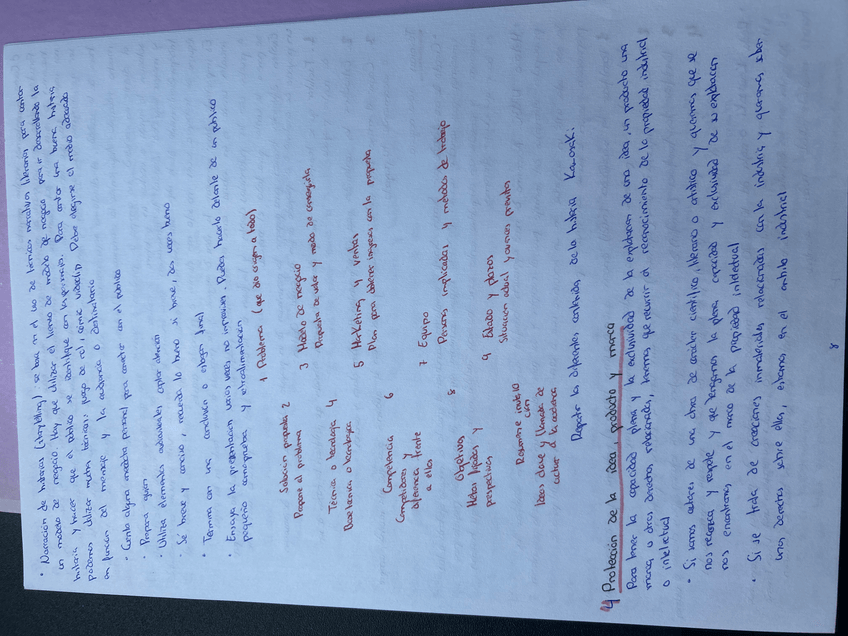 • Narración de historias (storytelling) se basa en el uso de técnicas narrativas literarias para contar
un modelo de negocio. Hay que utilizar el lienzo de modelo de negocio para ir describiendo la
historia y hacer que el público se identifique con los personajes. Para contar una buena historia
podemos utilizar muchas técnicas: juego de rol, cómic videoclip. Debe elegirse el medio adecuado
en función del mensaje y la audiencia o destinatario
• Cuenta alguna anécdota personal para conectar con el público
• Prepara guión
• Utiliza elementos audiovisuales, captar atención
• Sé breve y conciso, recuerda lo bueno si breve, dos veces bueno
• Termina con una conclusión o eslogan final
• Ensaya la presentación varias veces, no improvises. Puedes hacerlo delante de un público
pequeño como prueba y retroalimentación
1 Problema (que dio origen a todo)
Solución propuesta 2
Propone el problema
3 Modelo de negocio
Propuesta de valor y modo de conseguirla
Técnica o tecnología 4
Base técnica o tecnológica
5 Marketing y ventas
Plan para obtener ingresos con la propuesta
Competencia 6
Competidores y
diferencia frente
a ellos
7 Equipo
Personas implicadas y métodos de trabajo
Objetivos 8
Metas fijadas y
perspectivas
9 Estado y plazos
Situación actual y avances previstos
Resumen
Ideas clave y llamada de
actuar a la audiencia
Repartir los diferentes contenidos, de la historia Kamishi.
4 Protección de la idea, producto y marca
Para tener la capacidad plena y la exclusividad de la explotación de una idea, un producto una
marca u otros derechos relacionados, tenemos que recurrir al reconocimiento de la propiedad industrial
o intelectual
• Si somos autores de una obra de carácter científico, literario o artístico y queremos que se
nos reconozca y respete y que tengamos la plena capacidad y exclusividad de su explotación
nos encontramos en el marco de la propiedad intelectual
• Si se trata de creaciones inmateriales relacionadas con la industria y queremos tener
unos derechos sobre ellas, estamos en el ámbito industrial
8